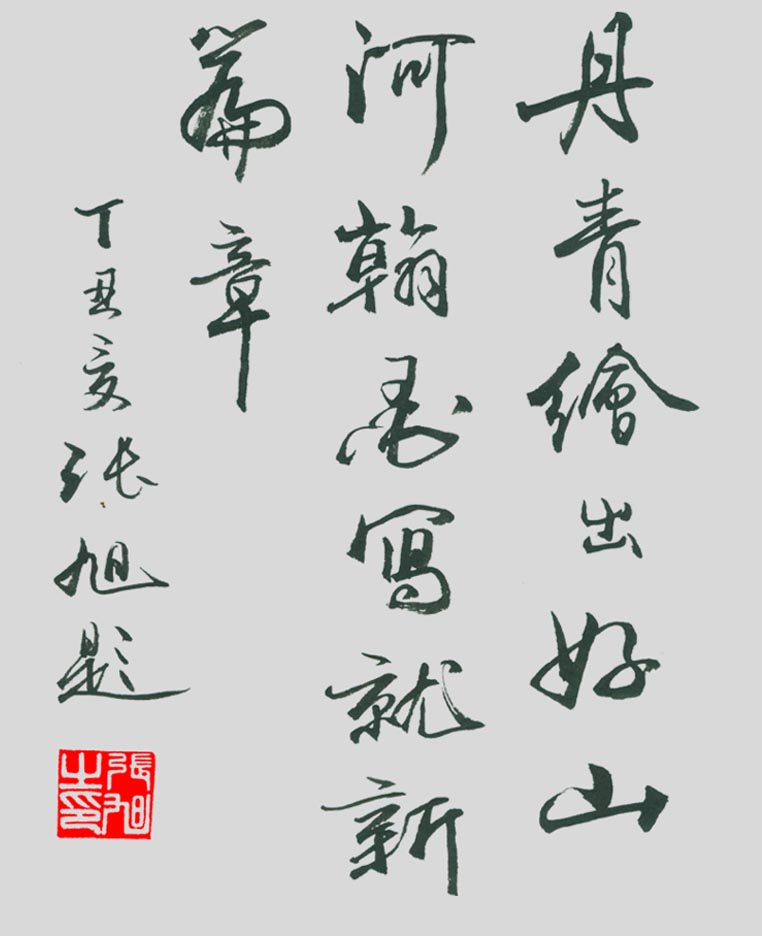 丹青繪出好山
河翰墨寫就新
篇章
丁丑夏张旭题
張旭之印